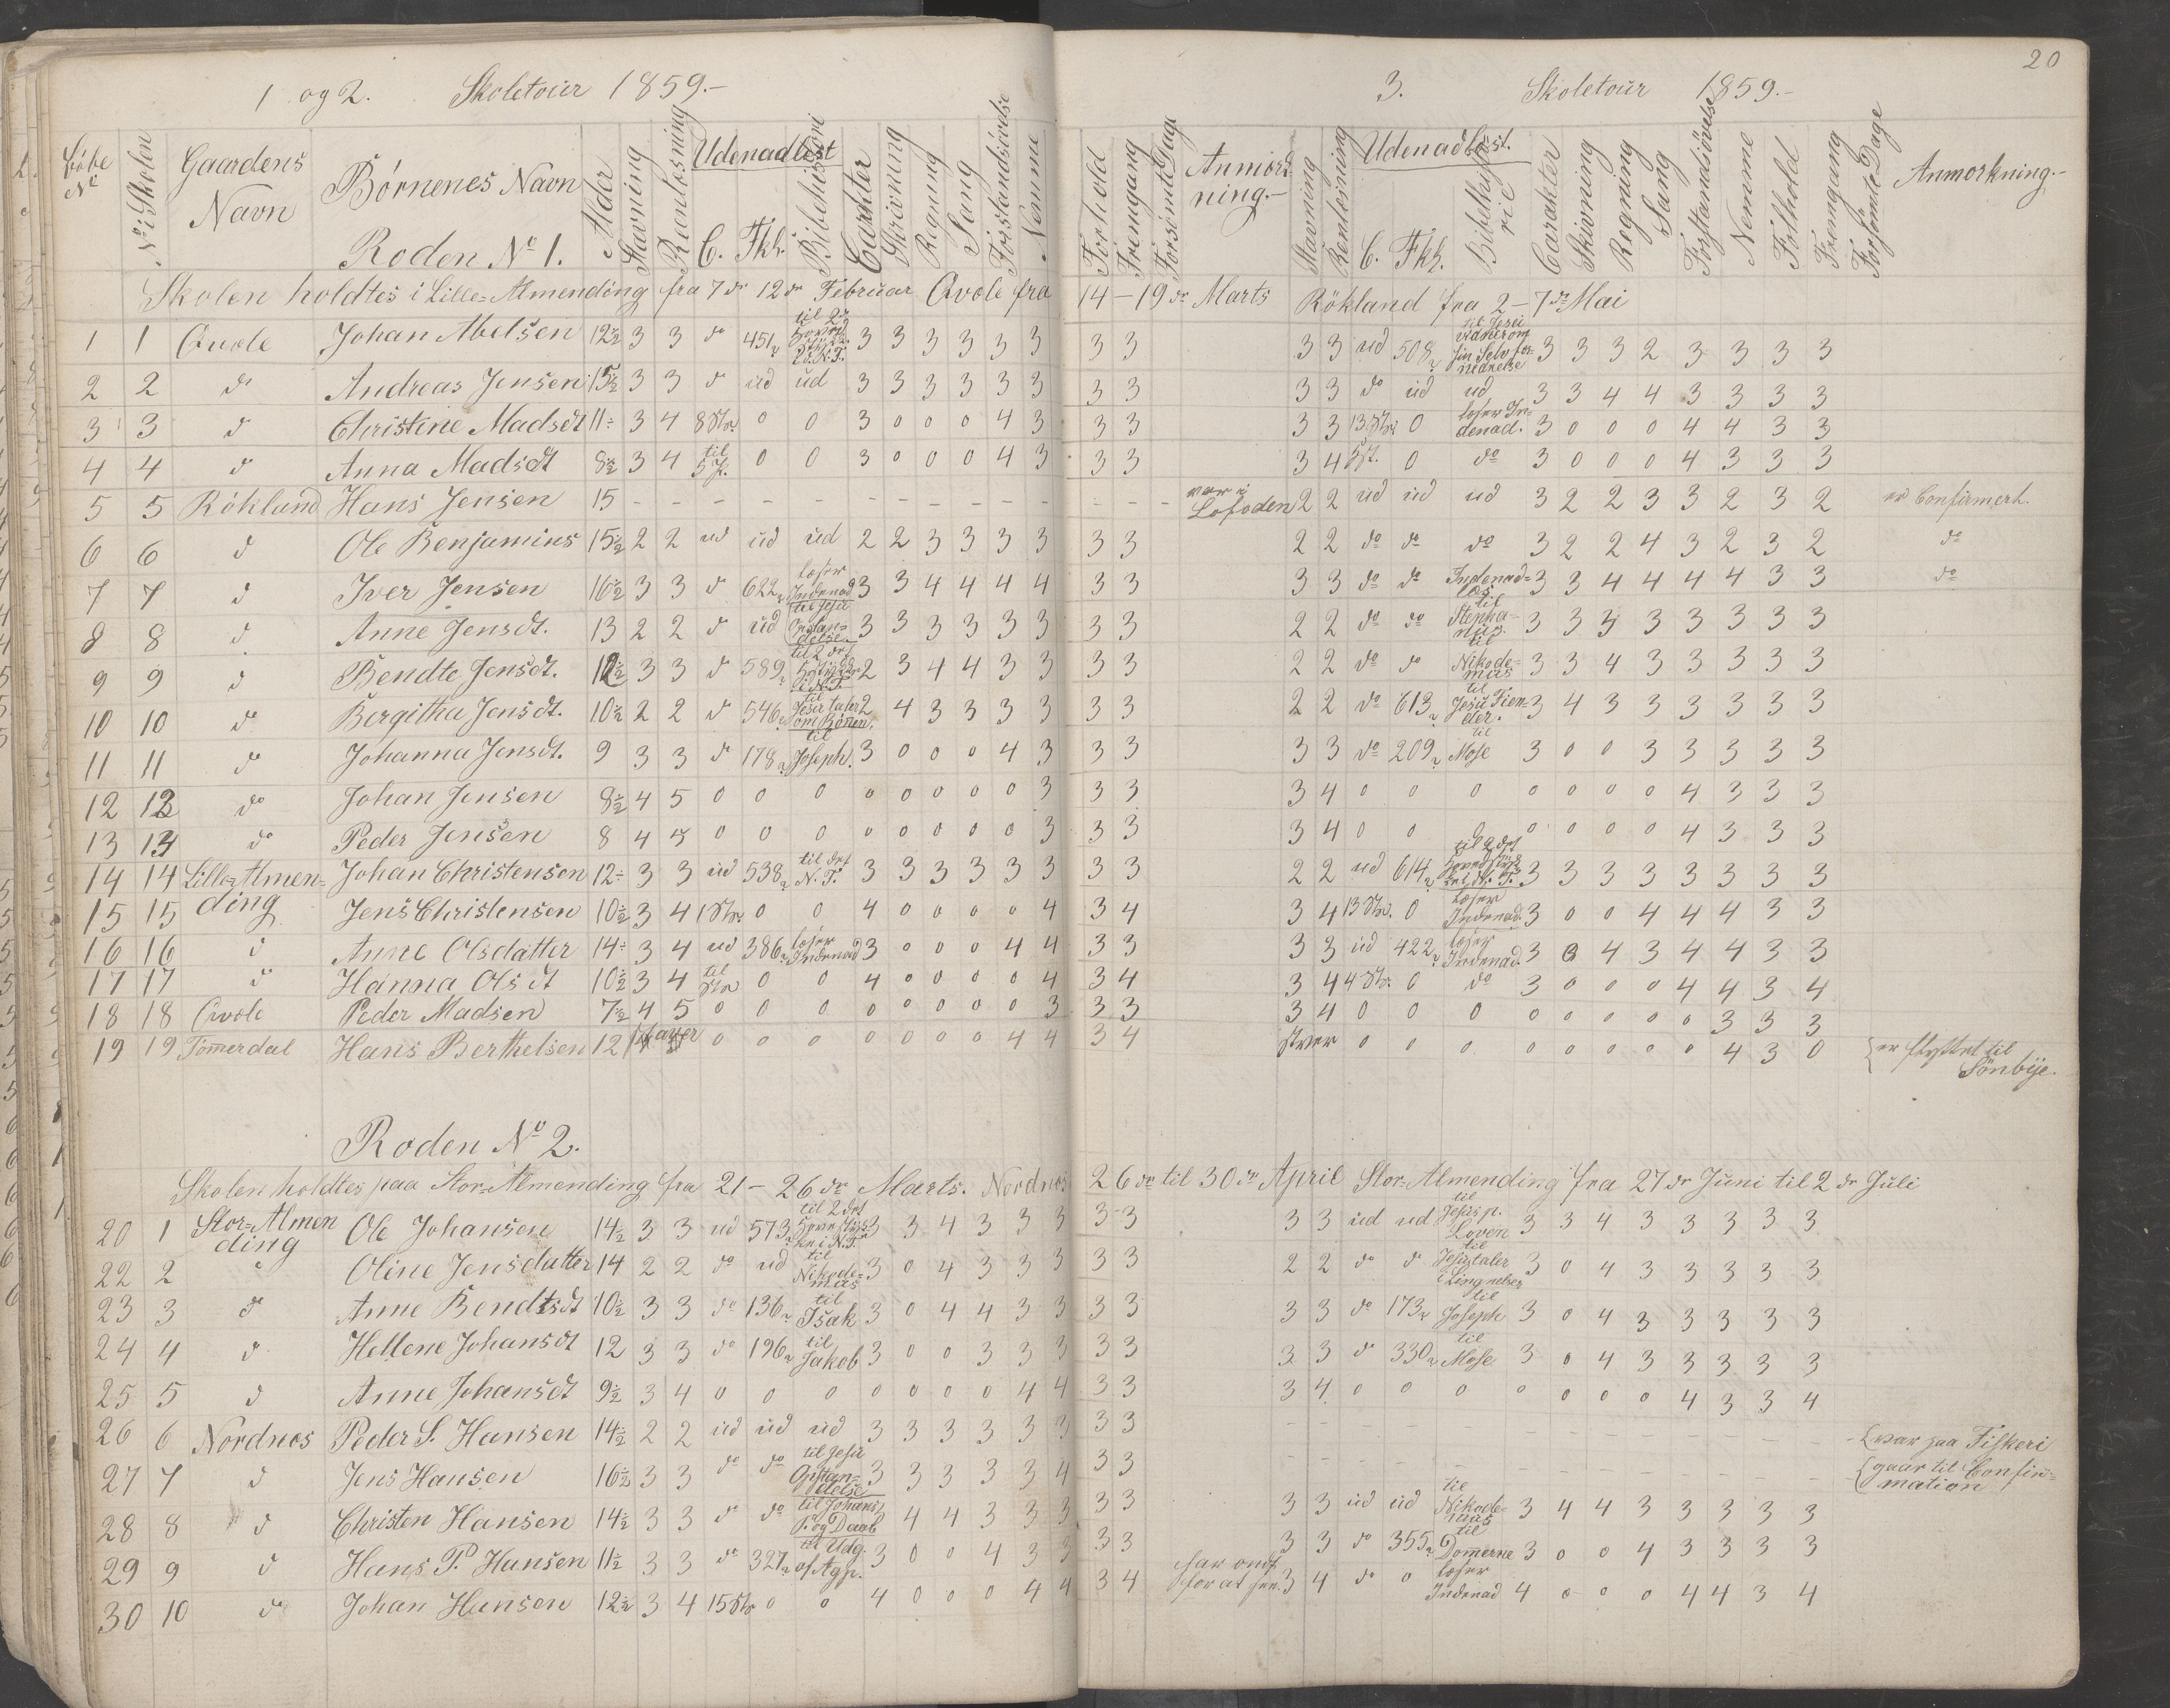 20
1 og 2. Skoletour 1859.-
3. Skoletour 1859.-
Löbe No | No i Skolen | Gaardens Navn | Börnenes Navn | Alder | Stavning | Reenlæsning | Udenadlæst C. Fkl. Bibelhistori | Carakter | Skrivning | Regning | Sang | Forstandsövelse | Nemme | Forhold | Fremgang | Forsömte Dage | Anmærkning.- | Stavning | Renlæsning | Udenadlæst. C. Fkl. Bibelhistorie | Carakter | Skrivning | Regning | Sang | Forstandsövelse | Nemme | Forhold | Fremgang | Forsömte Dage | Anmærkning.-
Roden No 1.
Skolen holdtes i Lille-Almending fra 7de 12de Februar Qvole fra 14-19de Marts Rökland fra 2-7de Mai
1 1 Qvole Johan Abelsen 12½ 3 3 do 451 til 2det N.T. 3 3 3 3 3 3 3 3 3 3 ud 508 til Jesu sin Selv fornedrelse 3 3 3 2 3 3 3 3
2 2 do Andreas Jensen 15½ 3 3 do ud ud 3 3 3 3 3 3 3 3 3 3 do ud ud 3 3 4 4 3 3 3 3
3 3 do Christine Madsdt 11 3 4 8 Str. 0 0 3 0 0 0 4 3 3 3 3 3 13 Str. 0 læser Indenad. 3 0 0 0 4 4 3 3
4 4 do Anna Madsdt 8½ 3 4 til 5 0 0 3 0 0 0 4 3 3 3 3 4 0 do 3 0 0 0 4 3 3 3
5 5 Rökland Hans Jensen 15 - - - - - - - - - - - - - - var i Lofoden 2 2 ud ud ud 3 2 2 3 3 2 3 2 er Confirmert.
6 6 do Ole Benjamins 15½ 2 2 ud ud ud 2 2 3 3 3 3 3 3 2 2 do do do 3 2 2 4 3 2 3 2 do
7 7 do Iver Jensen 16½ 3 3 do 622 læser Indenad 3 3 4 4 4 4 3 3 3 3 do do Indenad-læs 3 3 4 4 4 4 3 3 do
8 8 do Anne Jensdt. 13 2 2 do ud til Jesu Opstandelse 3 3 3 3 3 3 3 3 2 2 do do til Stephanus. 3 3 3 3 3 3 3 3
9 9 do Bendte Jensdt. 12½ 3 3 do 589 til 2det i N.T. 2 3 4 4 3 3 3 3 2 2 do do til Nikodemus 3 3 4 3 3 3 3 3
10 10 do Bergitha Jensdt. 10½ 2 2 do 546 til Jesu taler om Bönen. 2 4 3 3 3 3 3 3 2 2 do 613 til Jesu Fiender. 3 4 3 3 3 3 3 3
11 11 do Johanna Jensdt. 9 3 3 do 178 til Joseph. 3 0 0 0 4 3 3 3 3 3 do 209 til Mose 3 0 0 3 3 3 3 3
12 12 do Johan Jensen 8½ 4 5 0 0 0 0 0 0 0 0 3 3 3 3 4 0 0 0 0 0 0 0 4 3 3 3
13 13 do Peder Jensen 8 4 5 0 0 0 0 0 0 0 0 3 3 3 3 4 0 0 0 0 0 0 0 4 3 3 3
14 14 Lille-Almending Johan Christensen 12 3 3 ud 538 til det N.T. 3 3 3 3 3 3 3 3 2 2 ud 614 til 2det i N.T. 3 3 3 3 3 3 3 3
15 15 Jens Christensen 10½ 3 4 1 Str. 0 0 4 0 0 0 0 4 3 4 3 4 13 Str. 0 læser Indenad. 3 0 0 4 4 4 3 3
16 16 do Anne Olsdatter 14 3 4 ud 386 læser Indenad 3 0 0 0 4 4 3 3 3 3 ud 422 læser Indenad. 3 0 4 3 4 4 3 3
17 17 do Hanna Olsdt 10½ 3 4 til Str 0 0 4 0 0 0 0 4 3 4 3 4 4 Str. 0 do 3 0 0 0 4 4 3 4
18 18 Qvole Peder Madsen 7½ 4 5 0 0 0 0 0 0 0 0 3 3 3 3 4 0 0 0 0 0 0 0 0 3 3 3
19 19 Tömerdal Hans Berthelsen 12 staver 0 0 0 0 0 0 0 4 4 3 4 staver 0 0 0 0 0 0 0 0 4 3 0 er flyttet til Sönbye.
Roden No 2.
Skolen holdtes paa Stor-Almending fra 21-26de Marts. Nordnes 26de til 30te April Stor-Almending fra 27de Juni til 2de Juli
20 1 Stor-Almending Ole Johansen 14½ 3 3 ud 573 til 2det i N.T. 3 3 4 3 3 3 3 3 3 3 ud ud til Jesus p. Loven 3 3 4 3 3 3 3 3
22 2 Oline Jensdatter 14 2 2 do ud til Nikodemus 3 0 4 3 3 3 3 3 2 2 do do til Jesu taler i Lingnelser 3 0 4 3 3 3 3 3
23 3 do Anne Bendtsdt 10½ 3 3 do 136 til Isak 3 0 4 4 3 3 3 3 3 3 do 173 til Joseph 3 0 4 3 3 3 3 3
24 4 do Hellene Johansdt 12 3 3 do 196 til Jakob 3 0 0 3 3 3 3 3 3 3 do 330 til Mose 3 0 4 3 3 3 3 3
25 5 do Anne Johansdt 9½ 3 4 0 0 0 0 0 0 0 4 4 3 3 3 4 0 0 0 0 0 0 0 4 3 3 4
26 6 Nordnes Peder S. Hansen 14½ 2 2 ud ud ud 3 3 3 3 3 3 3 3 - - - - - - - - - - - - - var paa Fiskeri
27 7 do Jens Hansen 16½ 3 3 do do til Jesu Opstandelse 3 3 3 3 3 4 3 3 - - - - - - - - - - - - - gaar til Confirmation
28 8 do Christen Hansen 14½ 3 3 do do til Johans P. og Daab 4 4 3 3 3 3 3 3 3 ud ud til Nikodemus 3 4 4 3 3 3 3 3
29 9 do Hans P. Hansen 11½ 3 3 do 327 til Udg. af Ægp. 3 0 0 4 3 3 3 3 3 3 do 355 til Domerne 3 0 0 4 3 3 3 3
30 10 do Johan Hansen 12½ 3 4 15 Str 0 0 4 0 0 0 4 4 3 4 har ondt for at 3 4 do 0 læser Indenad 4 0 0 0 4 4 3 4